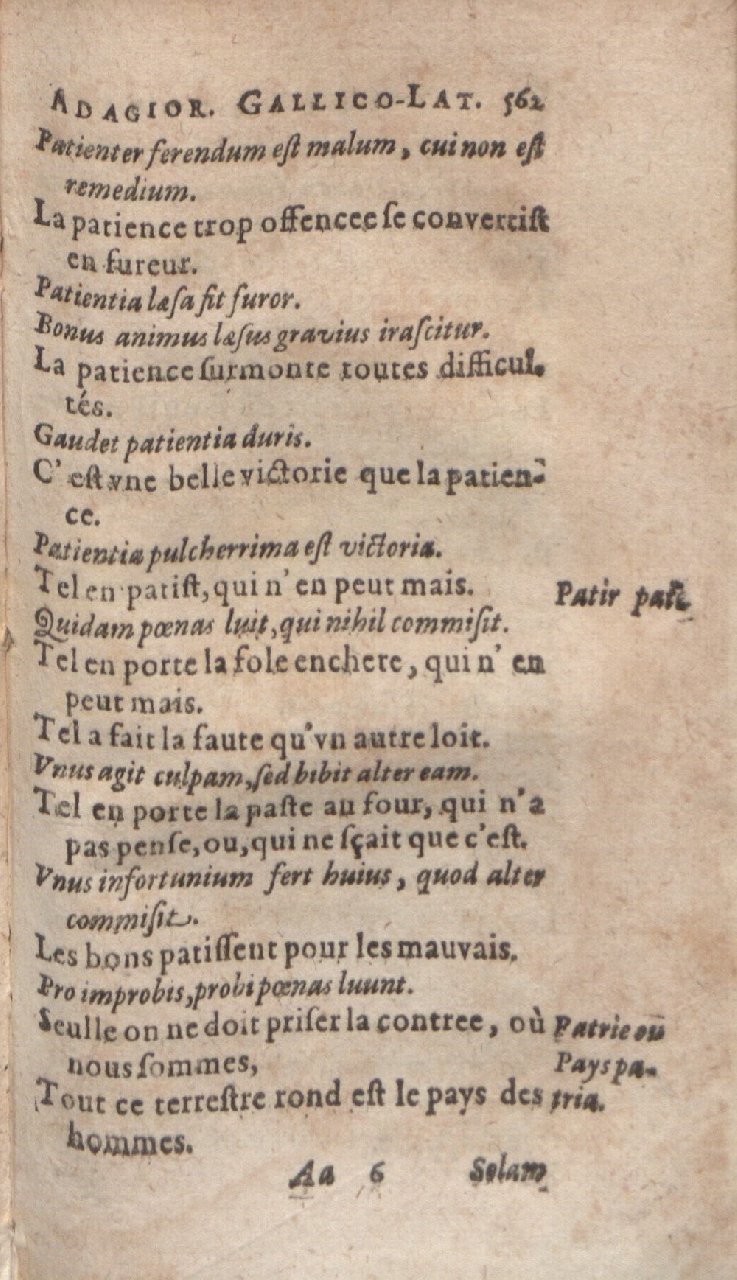 ADAGIOR. GALLICO-LAT. 562
Patienter ferendum est malum, cui non est
remedium.
La patience trop offencee se convertist
en fureur.
Patientia læsa fit furor.
Bonus animus læsus gravius irascitur.
La patience surmonte toutes difficul-
tés.
Gaudet patientia duris.
C'est vne belle victorie que la patien-
ce.
Patientia pulcherrima est victoria.
Tel en patist, qui n'en peut mais.
Patir pati
Quidam pœnas luit, qui nihil commisit.
Tel en porte la fole enchere, qui n'en
peut mais.
Tel a fait la faute qu'vn autre loit.
Vnus agit culpam, sed bibit alter eam.
Tel en porte la paste au four, qui n'a
pas pense, ou, qui ne sçait que c'est.
Vnus infortunium fert huius, quod alter
commisit.
Les bons patissent pour les mauvais.
Pro improbis, probi pœnas luunt.
Seulle on ne doit priser la contree, où
nous sommes,
Tout ce terrestre rond est le pays des
hommes.
Patrie ou
Pays pa-
tria.
Aa 6 Solam